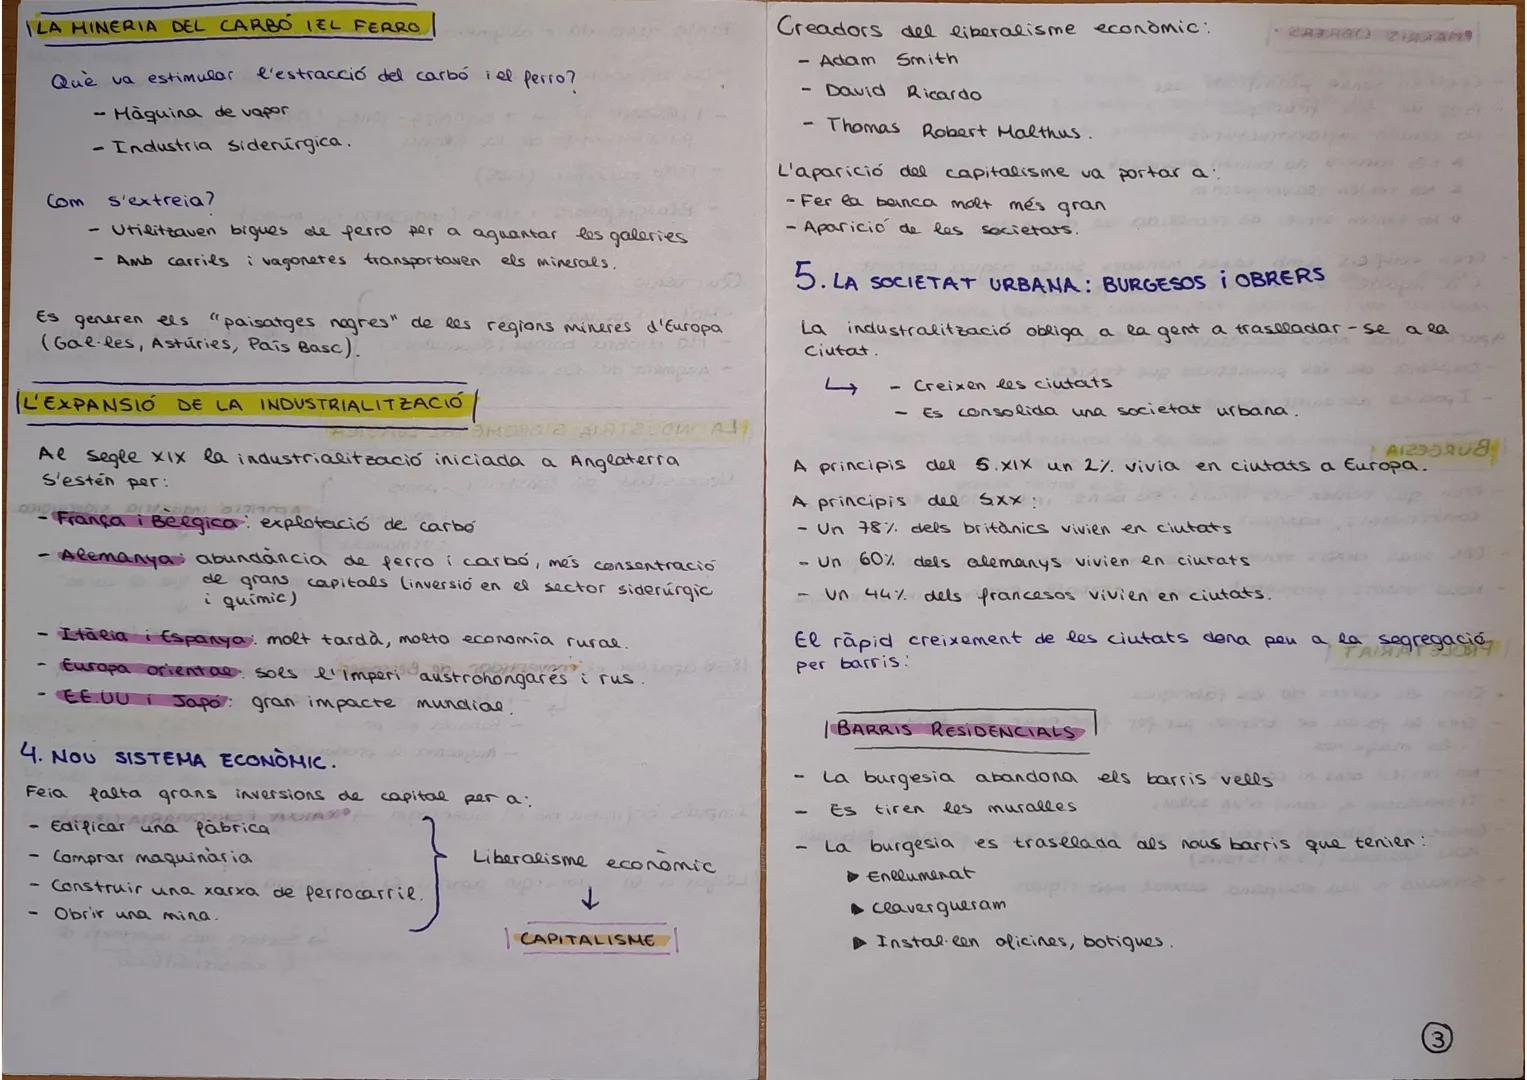 LA MINERIA DEL CARBÓ I EL FERRO
Què va estimular l'estracció del carbó i el ferro?
- Màquina de vapor
- Industria siderúrgica.
Com s'extreia?
- Utilitzaven bigues de ferro per a aguantar les galeries
- Amb carrils i vagonetes transportaven els minerals.
Es generen els "paisatges negres" de les regions mineres d'Europa
(Gal·les, Astúries, País Basc).
L'EXPANSIÓ DE LA INDUSTRIALITZACIÓ
Al segle XIX la industrialització iniciada a Anglaterra
s'estén per:
- França i Bèlgica: explotació de carbó
- Alemanya: abundància de ferro i carbó, més consentració
de grans capitals (inversió en el sector siderúrgic
i químic)
- Itàlia i Espanya: molt tardà, molta economía rural.
- Europa oriental: sols l'imperi austrohongarés i rus.
- EE.UU i Japó: gran impacte mundial.
4. NOU SISTEMA ECONÒMIC.
Feia falta grans inversions de capital per a:
- Edificar una fàbrica
- Comprar maquinària
- Construir una xarxa de ferrocarril.
- Obrir una mina.
Liberalisme econòmic
↓
CAPITALISME
Creadors del liberalisme econòmic:
- Adam Smith
- David Ricardo
- Thomas Robert Malthus.
L'aparició del capitalisme va portar a:
- Fer la banca molt més gran
- Aparició de les societats.
5. LA SOCIETAT URBANA: BURGESOS i OBRERS
La industralització obliga a la gent a traslladar-se a la
ciutat.
↳ - Creixen les ciutats
- Es consolida una societat urbana.
A principis del S.XIX un 2% vivia en ciutats a Europa.
A principis del SXX:
- Un 78% dels britànics vivien en ciutats
- Un 60% dels alemanys vivien en ciutats
- Un 44% dels francesos vivien en ciutats.
El ràpid creixement de les ciutats dona peu a la segregació
per barris:
BARRIS RESIDENCIALS
- La burgesia abandona els barris vells
- Es tiren les muralles
- La burgesia es trasllada als nous barris que tenien:
▶ Enllumenat
▶ Clavergueram
▶ Instal·len oficines, botigues.
3